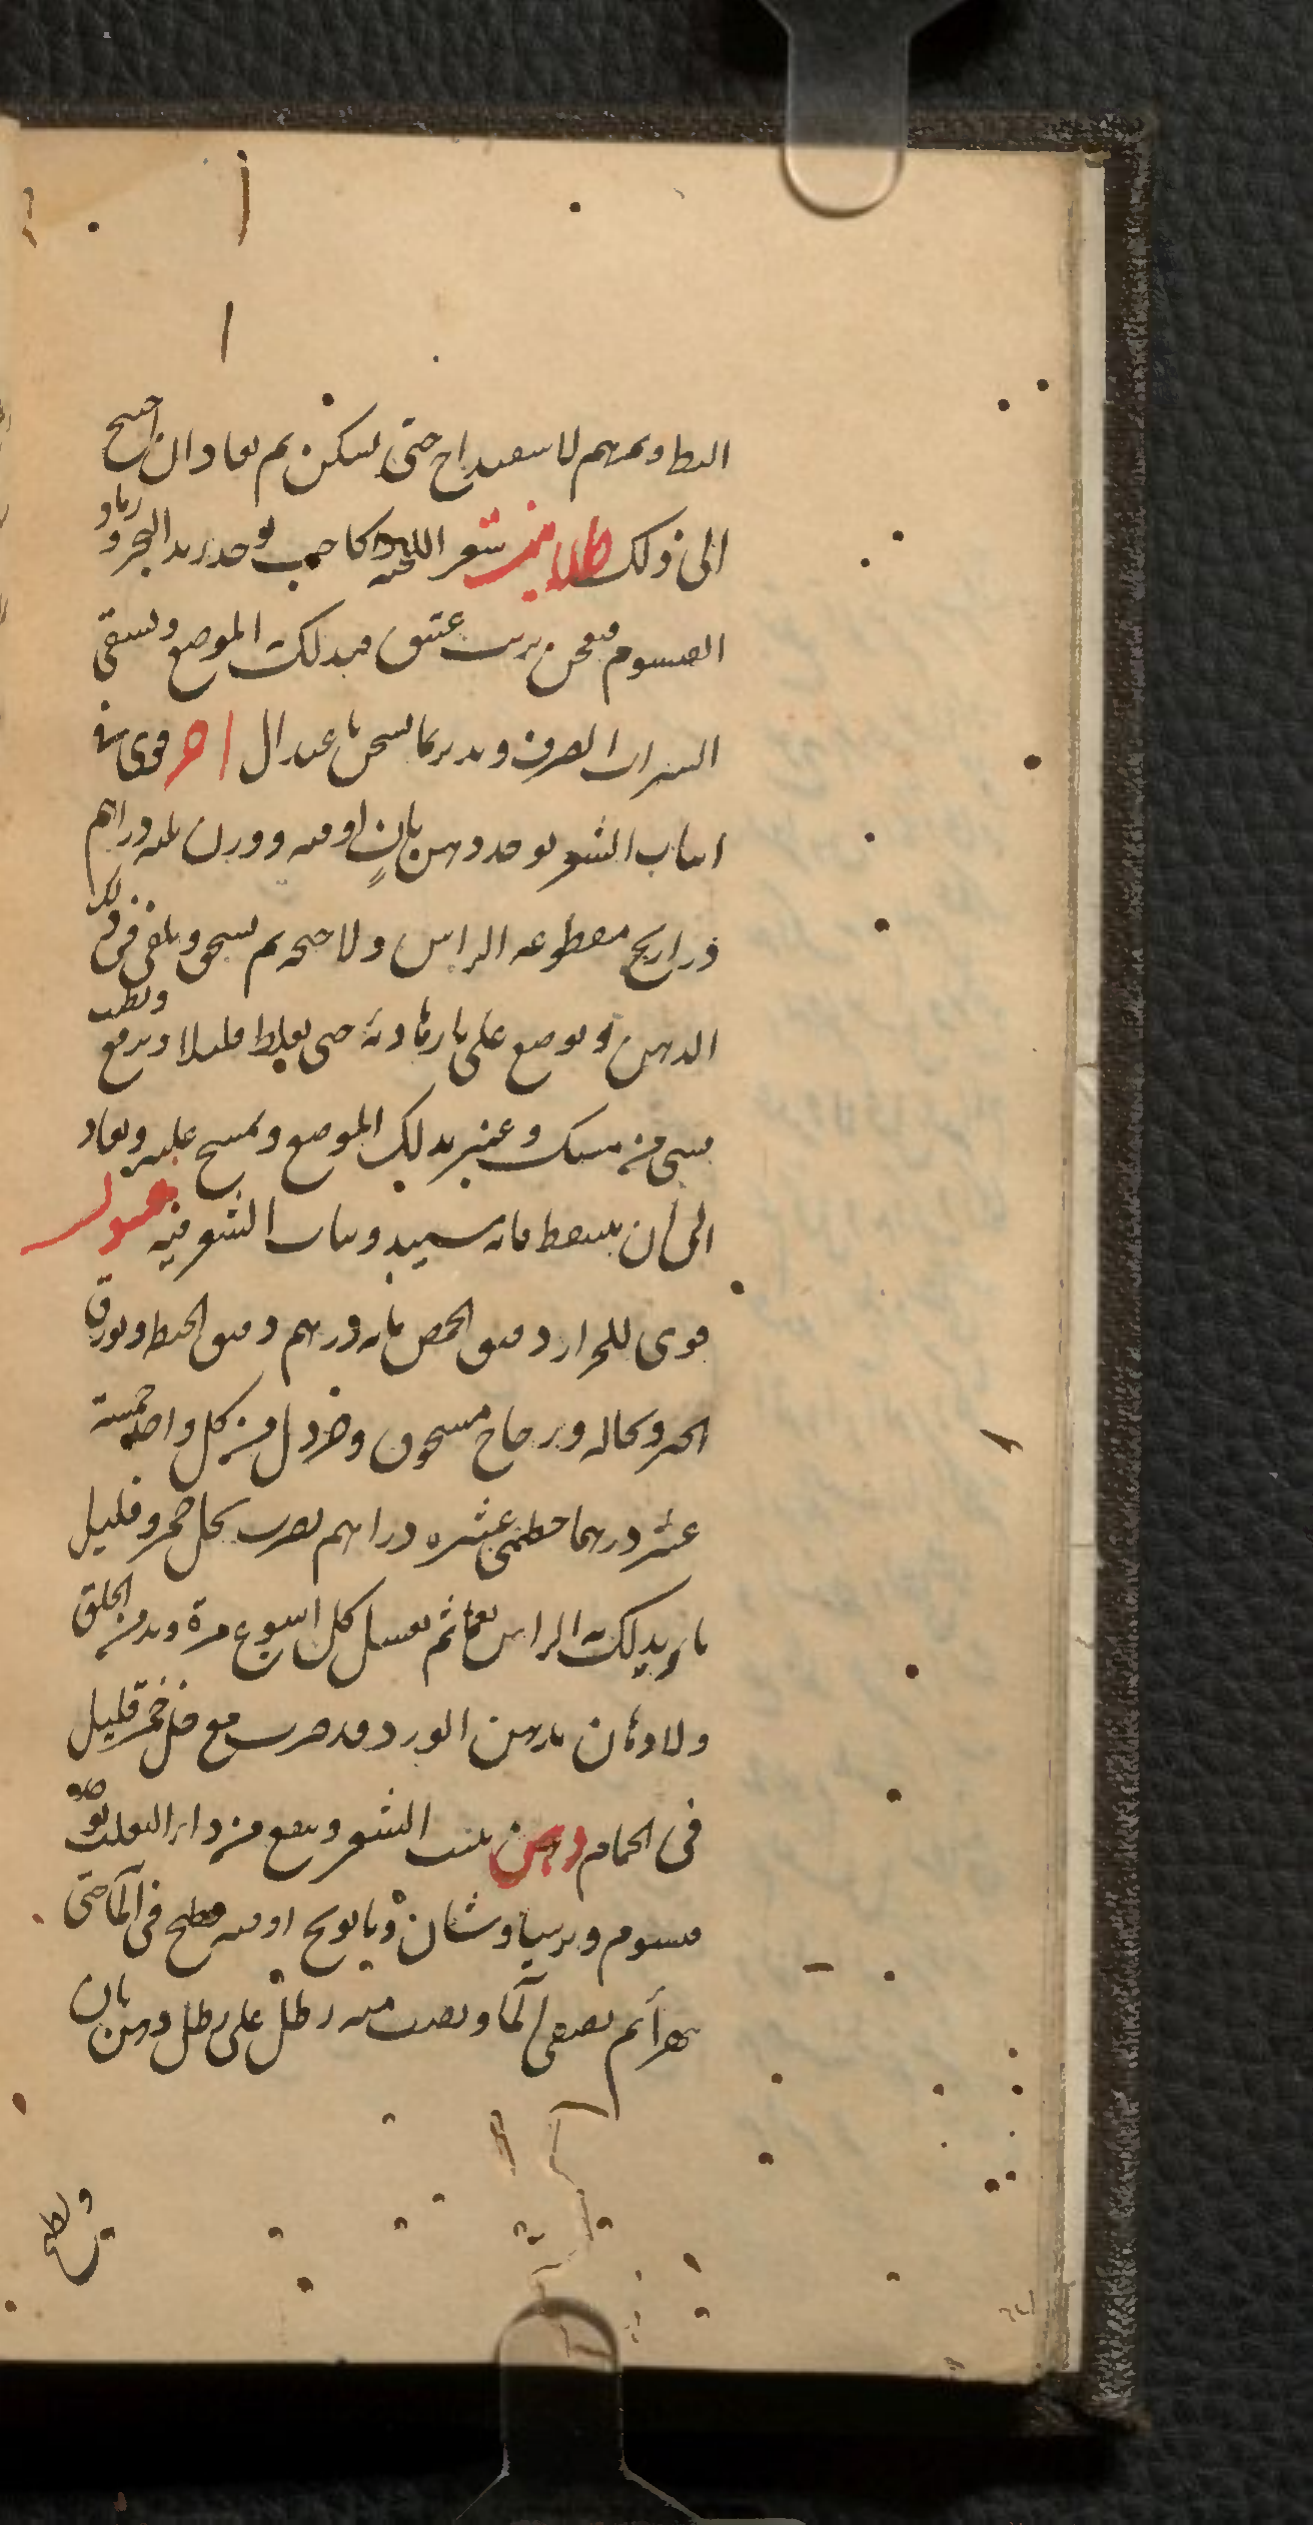 البط وبمرهم الاسفيداج حتى يسكن ثم يعاد ان احتيج
الى ذلك طلا ينبت شعر اللحية والحاجب يوخذ زبد البحر ورماد
القيسوم فيعجن بزيت عتيق فيدلك الموضع ويسقى
الشراب الصرف ويدبر بما يسخن باعتدال اخر قوى في
انبات الشعر يوخذ دهن بان اوقيه ووزن ثلثه دراهم
ذراريح مقطوعه الراس والاجنحه ثم يسحق ويلقى في ذلك
الدهن ويوضع على نار هادئة حتى يغلظ قليلا ويرفع ويطيب
بشى من مسك وعنبر يدلك الموضع ويمسح عليه ويعاد
الى ان يتنفط فانه سيبدو نبات الشعر فيه غسول
قوى للحزاز دقيق الحمص مائه درهم دقيق الحنطه وبورق
الخبز ونخاله وزجاج مسحوق وخردل من كل واحد خمسة
عشر درهما خطمى عشره دراهم يضرب بخل خمر وقليل
ما ويدلك به الراس نعما ثم يغسل كل اسبوع مرة ويدمن الحلق
والادهان بدهن الورد وقد ضرب مع خل خمر قليل
في الحمام دهن ينبت الشعر وينفع من دا الثعلب يوخذ
قيسوم وبرسياوشان وبابونج اوقيه يطبخ في الما حتى
يتهرأ ثم يصفى الما ويصب منه رطل على رطل دهن بان
ويطبخ